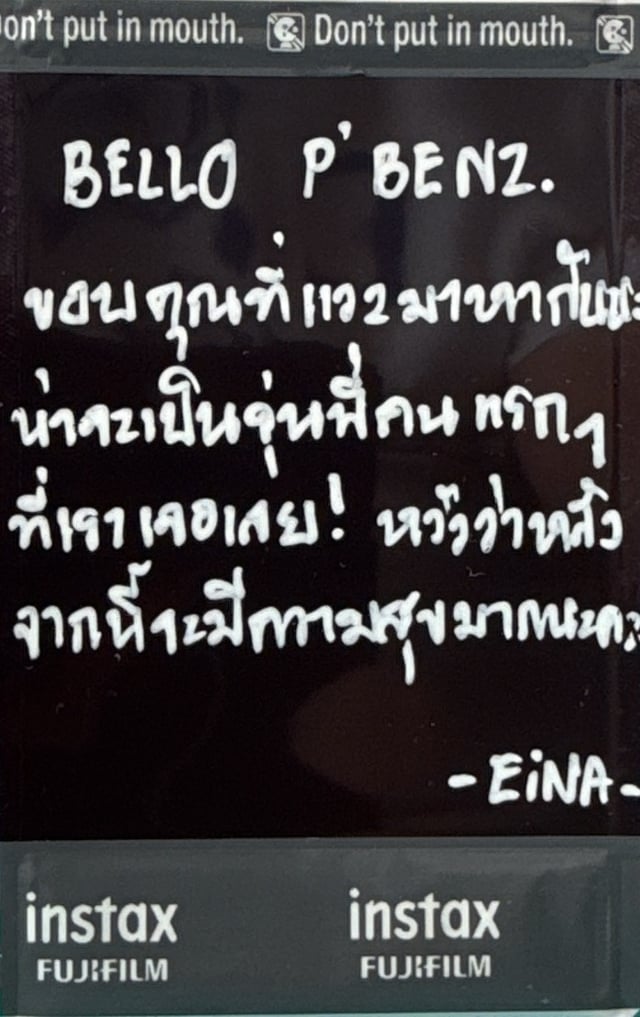 on't put in mouth. Don't put in mouth.
BELLO P'BENZ.
ขอบคุณที่แวะมาหากันนะ
น่าจะเป็นรุ่นพี่คนแรกๆ
ที่เราเจอเลย! หวังว่าหลัง
จากนี้จะมีความสุขมากนะคะ
-EiNA-
instax instax
FUJIFILM FUJIFILM